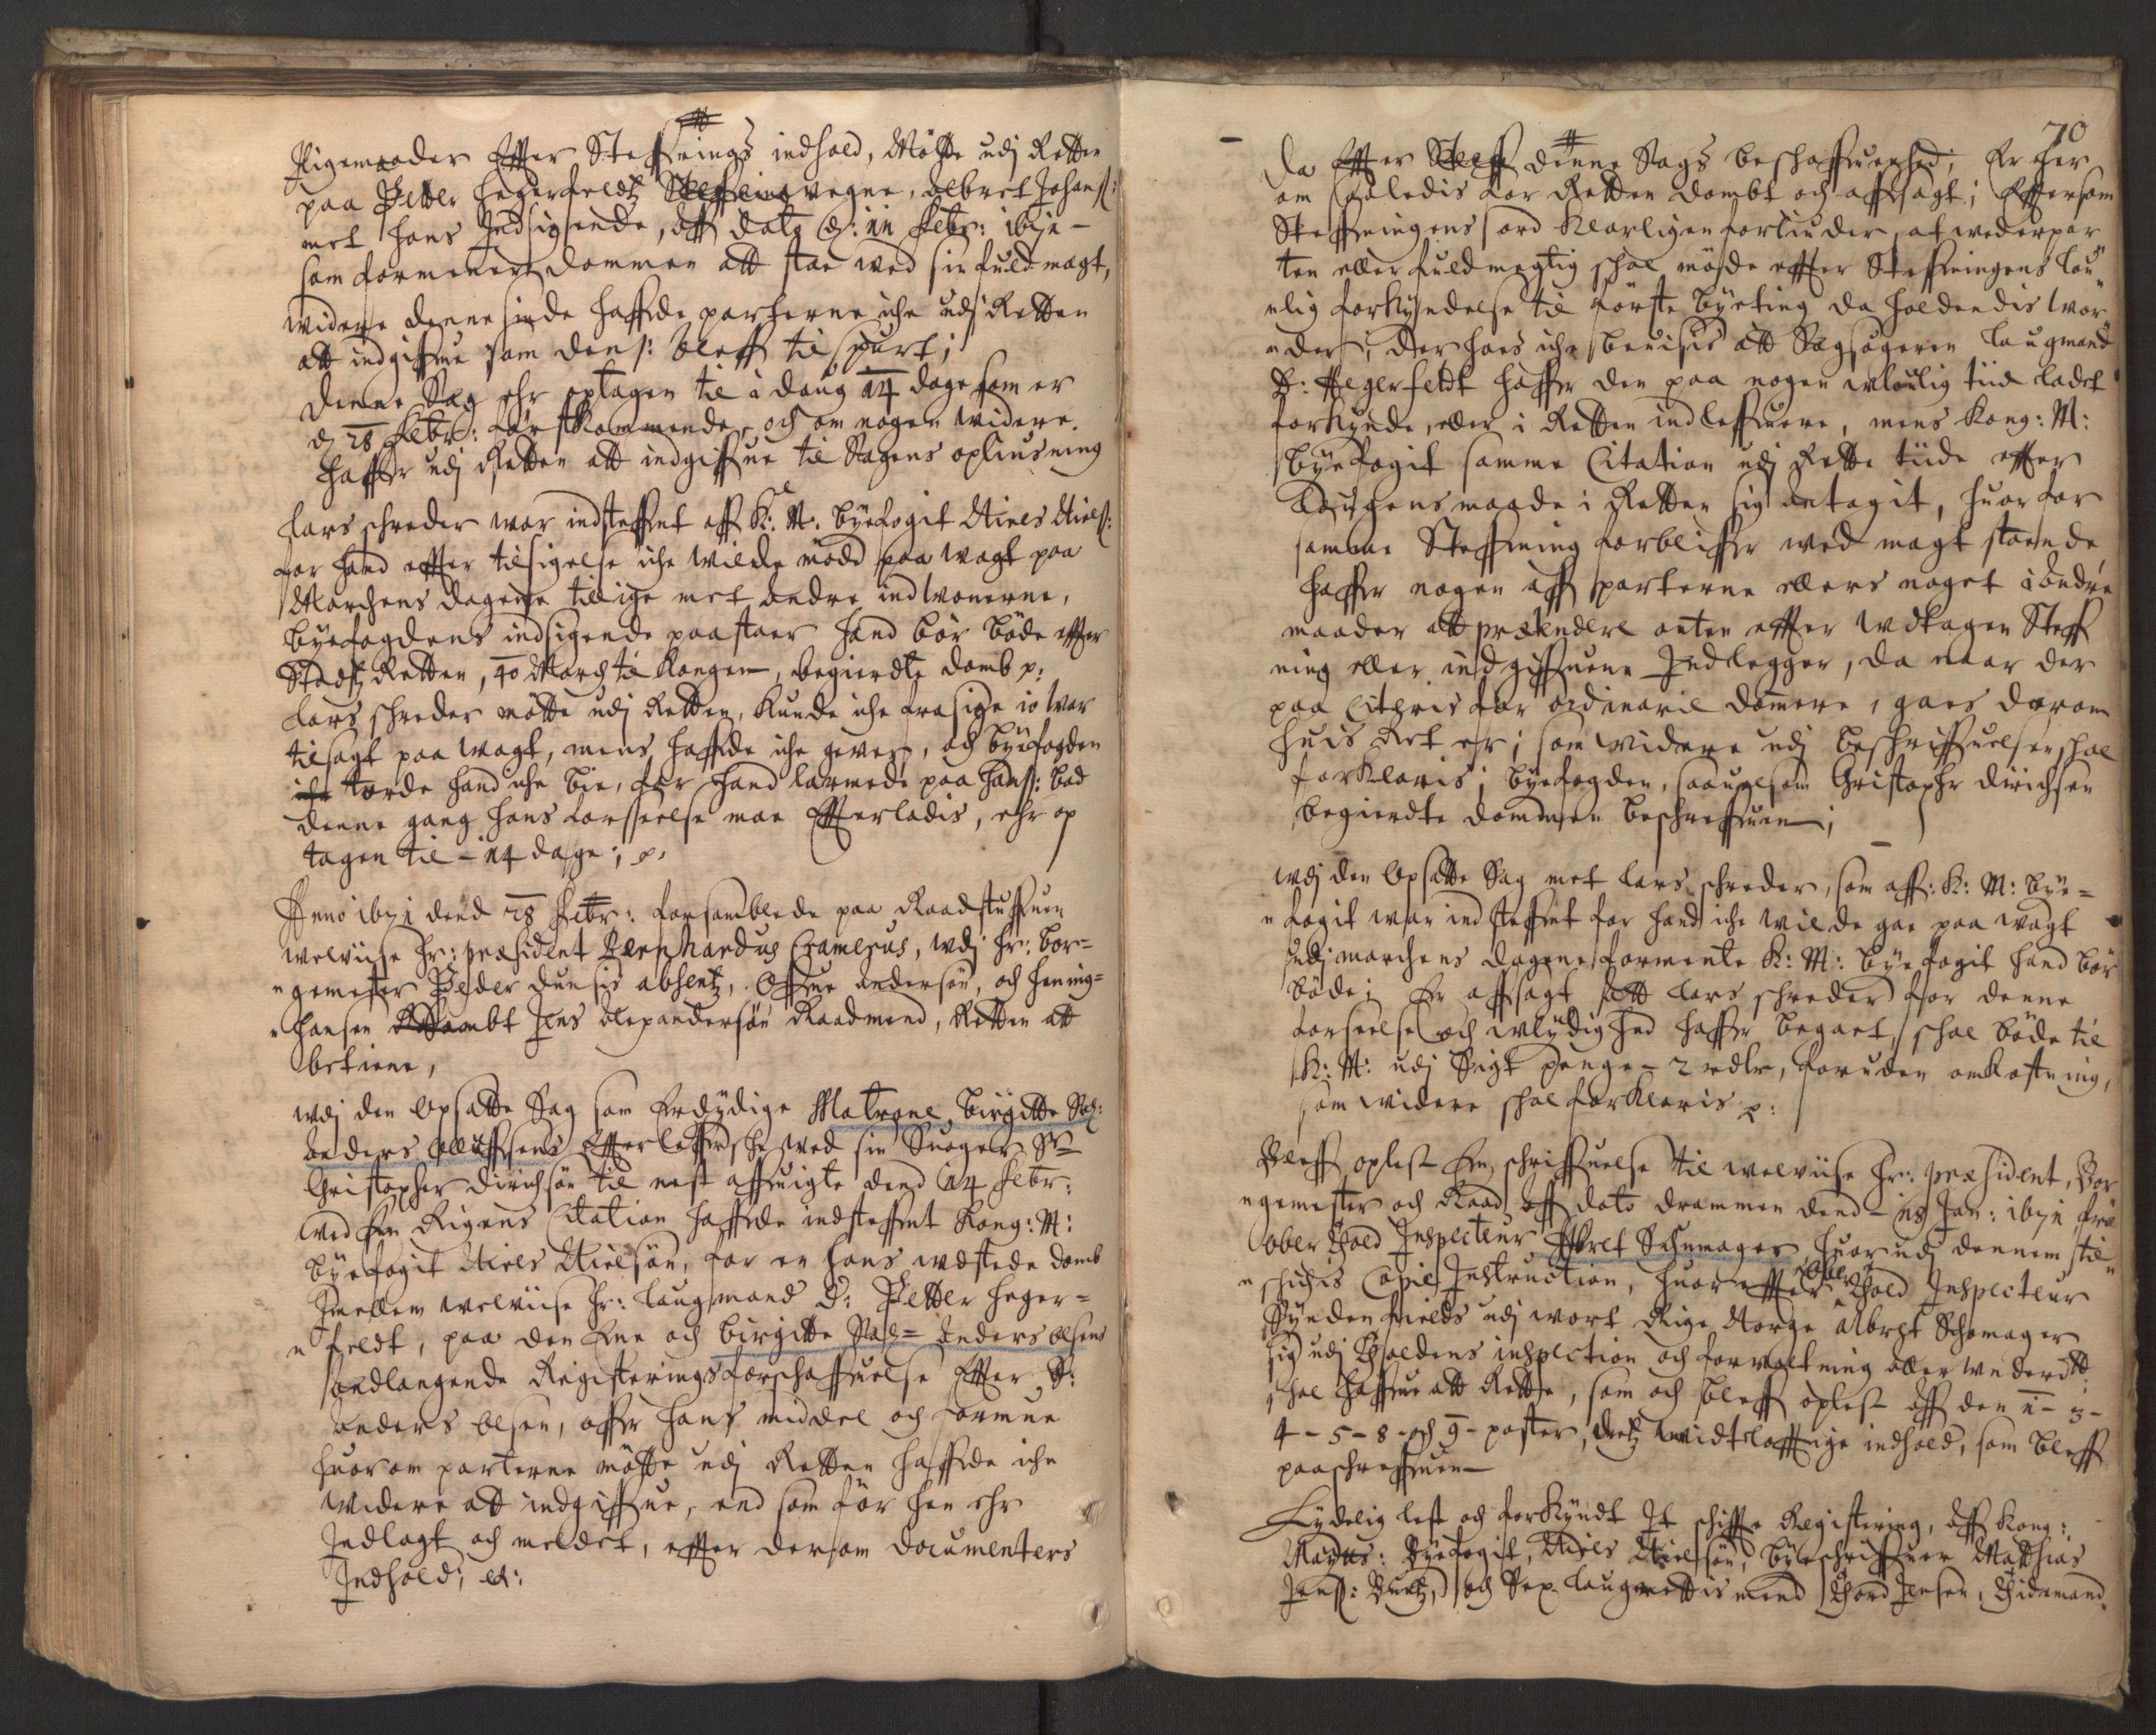 Ligemaader Efter Steffnings indhold, Mötte udj Retten
paa Petter Hegerfeldtz vegne, Albret Johanß:
met hans Indsigende, aff dato d: 11 Febr: 1671 -
som formener dommen att staa ved sin fuldmagt,
widere denne sinde haffde parterne iche udj Retten
att indgiffue som dennß: bleff tilspurt;
Denne Sag ehr optagen til i daug 14 dage som er
d 28 Febr: förstkommende, och om nogen widere
haffer udj Retten att indgiffue til Sagens opliusning
Lars schreder war indsteffnet aff K: M: byefogit Niels Nielß:
for hand effter tilsigelse iche wilde möde paa wagt paa
Marchens dagene tillige met andre indwonerne,
byefogdens indsigende paastaer hand bör böde effter
Stadtz Retten, 40 March til Kongen, begierdte domb p:
Lars schreder mötte udj Retten, kunde iche fra sige io war
tilsagt paa wagt, mens haffde iche gever, och byefogden
torde hand iche bie, for hand larmede paa hanß: bad
denne gang hans forseelse maa Effterladis, ehr op
tagen til - 14 dage; p.
Anno 1671 dend 28 Febr: forsamblede paa Raadstuffuen
welviise Hr: præsident Bernhardus Cramerus, udj Hr: bor=
gemester Peder Dunsis absentz, Offue Andersön, och Hening=
Hansen Jens Alexandersön Raadmend, Retten att
betiene,
Udj den opsatte Sag som Erdydige Matrone Birgitte Sal:
Anders Olluffsens Effterleffuerske ved sin Suoger Sr
Christopher Dirichsön til nest affuigte dend 14 Febr:
ved en Rigens Citation haffde indsteffnet Kong: M:
byefogit Niels Nielsön, for en hans udstede domb
Imellem welviise Hr: Laugmand S: Petter Heger=
feldt, paa den Ene och Birgitte Sal= Anders Olsens
andlangende Registerings forschaffuelse Effter S:
Anders Olsen, offuer hans middel och formue
huorom parterne mötte udj Retten haffde iche
widere att indgiffue, end som för hen ehr
Indlagt och meldet, effter dersom documenters
Indhold; et:
70
Da Effter denne Sags beschaffuenhed, Er her
om saaledis for Retten dombt och affsagt; Efftersom
Steffningens ord klarligen formelder, at wederpar
ten eller fuldmegtig schal möde effter Steffningens lou
lig forkyndelse til förste byeting da holdendis wor
der; der hoes iche bevisis att Sagsögeren Laugmand
P: Hegerfeldt haffer den paa nogen ulovlig tiid ladet
forkynde, eller i Retten indleffuere, mens Kong: M:
byefogit samme Citation udj Rette tiide effter
Lougens maade i Retten sig antagit, huorfor
samme Steffning forbliffuer ved magt staaende
haffer nogen aff parterne ellers noget i andre
maader att prætendere enten effter udtagen Steff
ning eller indgiffuene Indlegger, da naar der
paa Citeris for ordinarie dommere, gaes derom
huis Ret er; som widere udj beschriffuelsen schal
forklaris; byefogden, saauelsom Christopher Dirichsen
begierdte dommen beschreffuen;
Udj den Opsatte Sag met Lars schreder, som aff: K: M: bye=
fogit war indsteffnet for hand iche wilde gaa paa wagt
udj marchens dagene formente K: M: byefogit hand bör
böde; Er affsagt att Lars schreder for denne
forseelse och ulydighed haffer begaaet, schal böde til
K: M: udj Sigt penge - 2 rdlr, foruden omkostning,
som widere schal forklaris p:
Bleff oplest En schriffuelse til welviise Hr: præsident, Bor
gemester och Raad aff dato Drammen dend - 18 Jan: 1671 fra
Ober Thold Inspecteur Albret Schumager huorudj dennem til
schichis Copie Instruction, huor effter Ober Thold Inspecteur
Synden fields udj wort Rige Norge Albret Schomager
sig udj Tholdens inspection och forvaltning allerunderdt:
schal haffue att Rette, som och bleff oplest aff den 1 - 3 -
4 - 5 - 8 - och 9 - poster, dets widtlöfftige indhold, som bleff
paaschreffuen
Lydelig lest och forkyndt Et schiffte Registering, aff Kong:
Mayts: Byefogit, Niels Nielsön, byeschriffuer Matthias
Jenß: Buntz, och Sex laugrettismend Thord Jensen, Tidemand